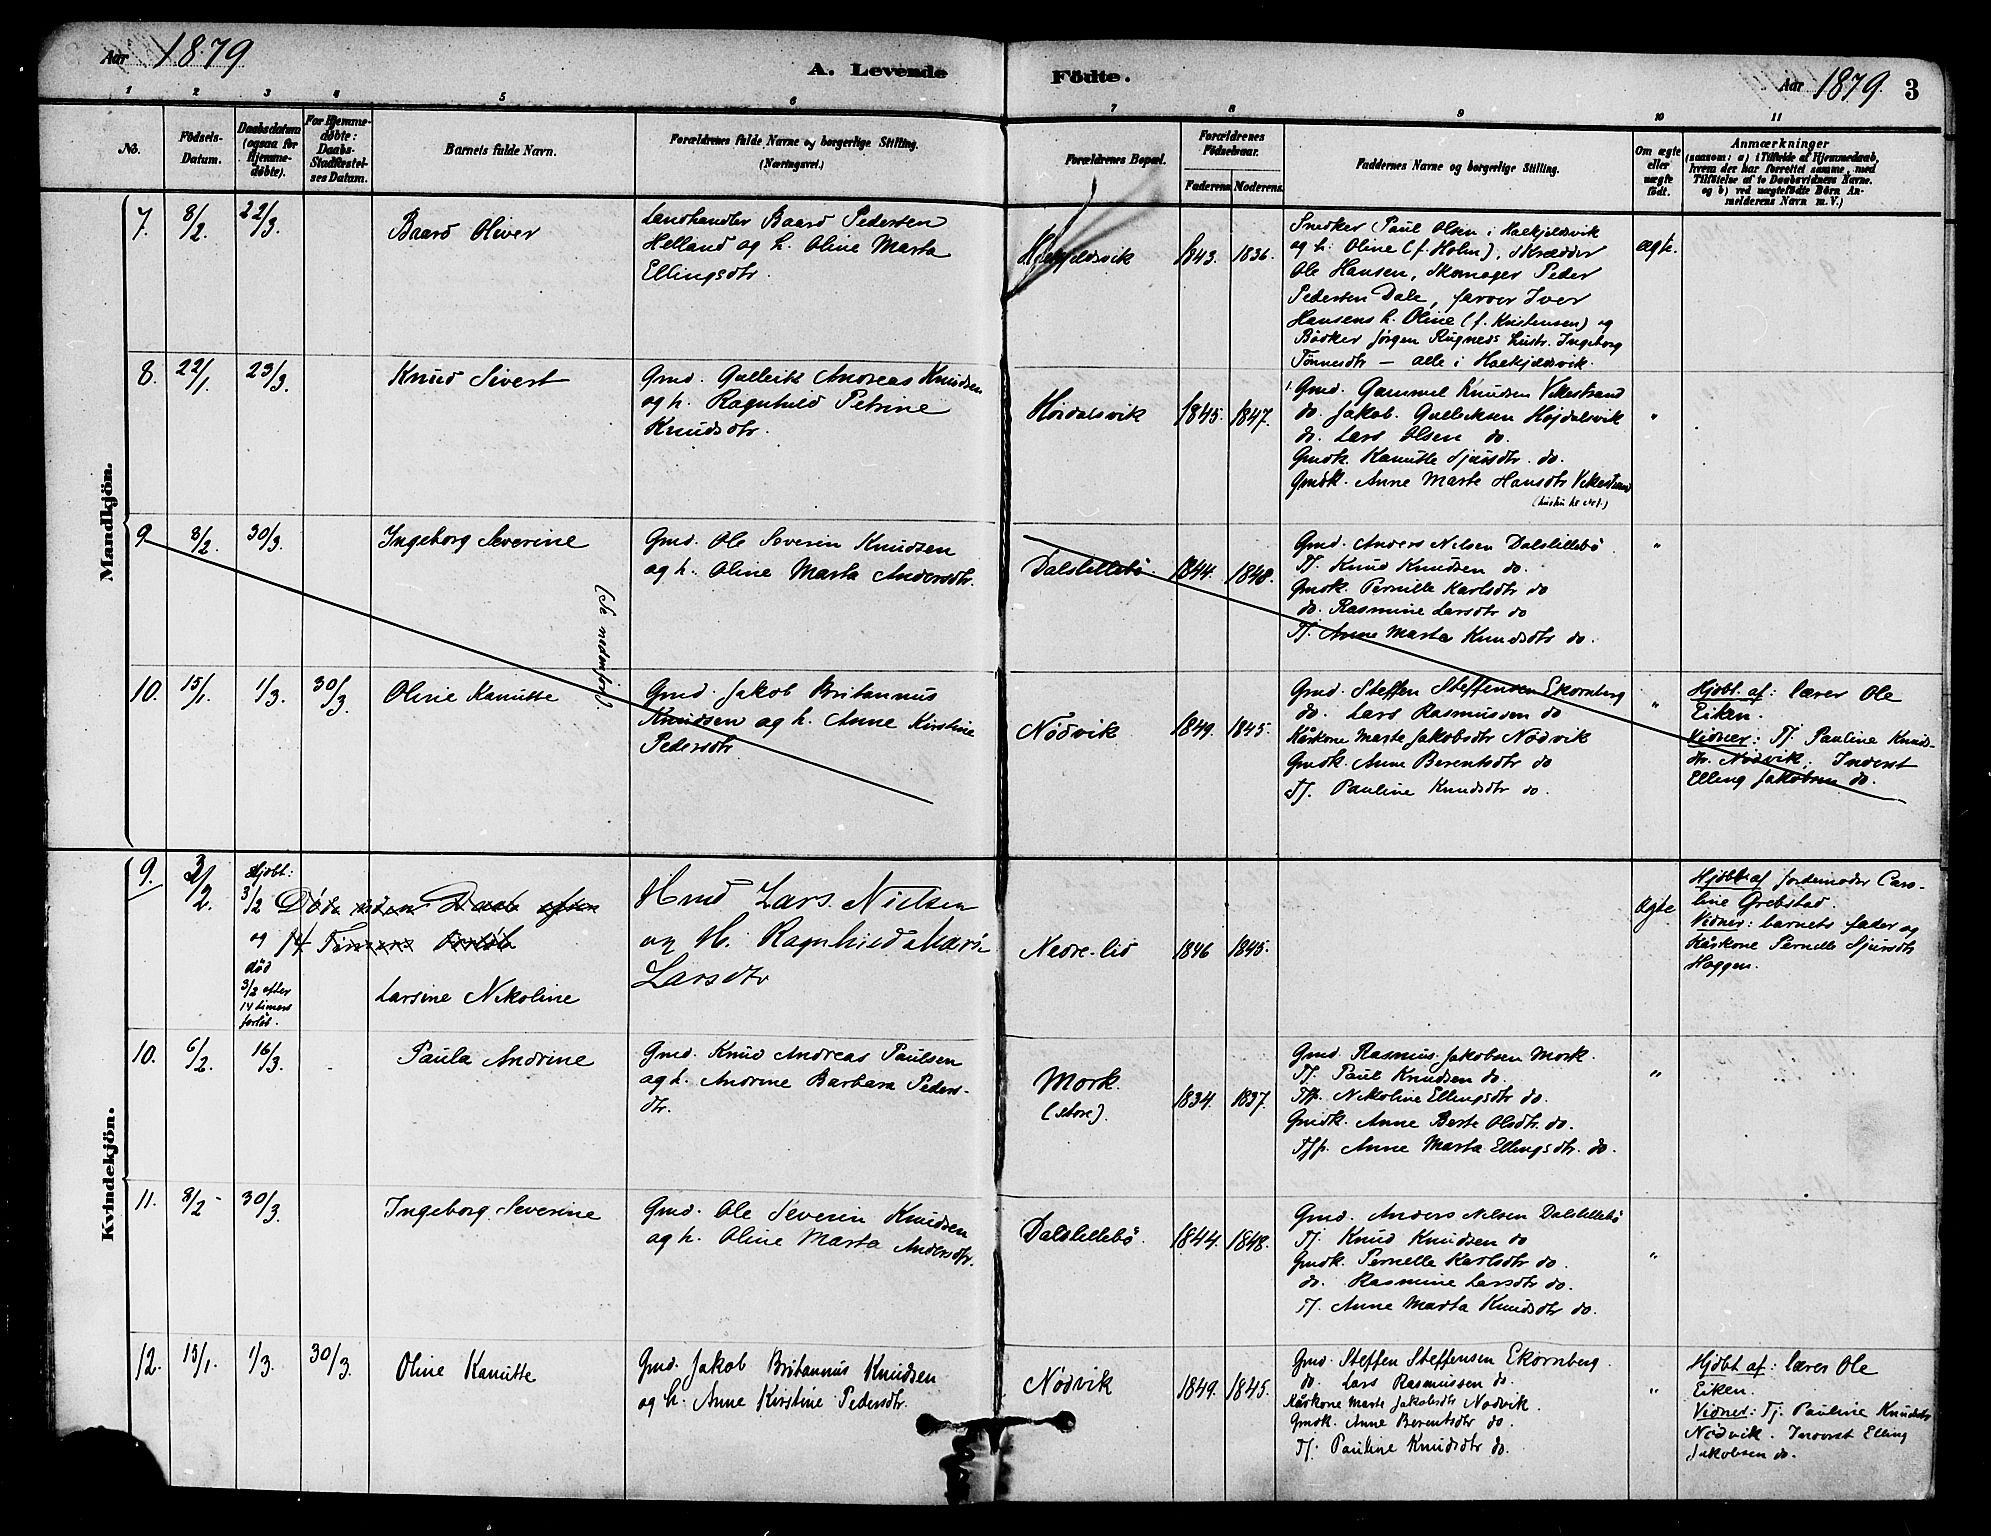 Aar 1879
A. Levende Födte.
Aar 1879. 3
1 2 3 4 5 6 7 8 9 10 11
No.
Födsels-
Datum.
Daabsdatum
(ogsaa for
Hjemme-
døbte).
For Hjemme-
døbte:
Daabs-
Stadfæstel-
ses Datum.
Barnets fulde Navn.
Forældrenes fulde Navne og borgerlige Stilling.
(Næringsvei.)
Forældrenes Bopæl.
Forældrenes
Födselsaar.
Faderens. Moderens.
Faddernes Navne og borgerlige Stilling.
Om ægte
eller
uægte
født.
Anmærkninger
(saasom: a) i Tilfælde af Hjemmedaab,
hvem der har forrettet samme, med
Tilføielse af to Daabsvidners Navne,
og b) ved uægtefødte Börn An-
melderens Navn m. V.)
Mandkjön.
7. 8/2. 22/3.
Baard Oliver
Landhandler Baard Pedersen
Helland og h. Oline Marta
Ellingsdtr.
1843. 1836.
Snedker Paul Olsen i Haekjeldsvik
og h. Oline (f. Holm), Skrædder
Ole Hansen, Skomager Peder
Pedersen Dale, farver Iver
Hansens h. Oline (f. Kristensen) og
Bødker Jørgen Rugneds hustr. Ingeborg
Tønnesdtr — alle i Haekjeldsvik.
ægte.
8. 22/1. 23/3.
Knud Sivert
Gmd. Gullerik Andreas Knudsen
og h. Ragnhild Petrine
Knudsdtr.
1845. 1847.
Gmd. Gammel Knudsen Vikestrand
do. Jakob Gulleiksen Højdalsvik
do. Lars Olsen do.
Gmdk. Kanutte Sjursdtr. do.
Gmdk. Anne Marte Hansdtr Vikestrand
"
9 8/2. 30/3.
Ingeborg Severine
(Se nedenfor).
Gmd. Ole Severin Knudsen
og h. Oline Marta Andersdtr.
Dalslillebö.
1844. 1848.
Gmd. Anders Nilsen Dalslillebö.
Tj. Knud Knudsen do.
Gmdk. Pernille Karlsdtr do
do. Rasmine Larsdtr do
Tj. Anne Marta Knudsdtr do.
"
10. 15/1. 1/3. 30/3.
Oline Kanutte
Gmd. Jakob Britannus
Knudsen og h. Anne Kirstine
Pedersdtr
Nödvik
1849. 1845.
Gmd. Steffen Steffensen Ekornberg
do. Lars Rasmussen do
Kårkone Marte Jakobsdtr Nödvik
Gmdk. Anne Berentsdtr do
Tj. Pauline Knudsdtr do.
"
Hjdbt. af: lærer Ole
Eiken.
Vidner: Tj. Pauline Knuds-
dtr. Nödvik; Inderst
Elling Jakobsen do.
Kvindekjön.
9. 3/2.
Hjdbt:
3/2
og
død
3/2 efter
14 timers
forløb.
Døde uden Daab efter
14 Timers Forløb
Larsine Nikoline
Hmd Lars Nielsen
og H. Ragnhild Marie
Larsdtr
Nedre-lid
1846 1845.
Ægte.
Hjdbt af jordemoder Caro-
line Grebstad.
Vidner: barnets fader og
Kårkone Pernille Sjursdtr
Haggen.
10. 6/2. 16/3.
Paula Andrine
Gmd. Knud Andreas Paulsen
og h. Andrine Barbara Peders-
dtr.
Mork.
(store).
1834. 1837.
Gmd. Rasmus Jakobsen Mork.
Tj. Paul Knudsen do.
Tjp. Nikoline Ellingsdtr do.
Gmdk. Anne Berte Olsdtr. do.
Tjp. Anne Marta Ellingsdtr. do.
"
11. 8/2 30/3.
Ingeborg Severine
Gmd. Ole Severin Knudsen
og h. Oline Marta Andersdtr.
Dalslillebö.
1844. 1848.
Gmd. Anders Nilsen Dalslillebö
Tj. Knud Knudsen do
Gmdk. Pernille Karlsdtr do.
do. Rasmine Larsdtr do
Tj. Anne Marta Knudsdtr do.
"
12. 15/1. 1/3. 30/3.
Oline Kanutte
Gmd. Jakob Britannus Knudsen
og h. Anne Kirstine Pedersdtr.
Nödvik
1849. 1845.
Gmd. Steffen Steffensen Ekornberg.
do. Lars Rasmussen do.
Kårkone Marte Jakobsdtr Nødvik.
Gmdk. Anne Berentsdtr do.
Tj. Pauline Knudsdtr do.
"
Hjdbt af: lærer Ole
Eiken.
Vidner: Tj. Pauline Knudsdtr
Nödvik. Inderst Elling
Jakobsen do.